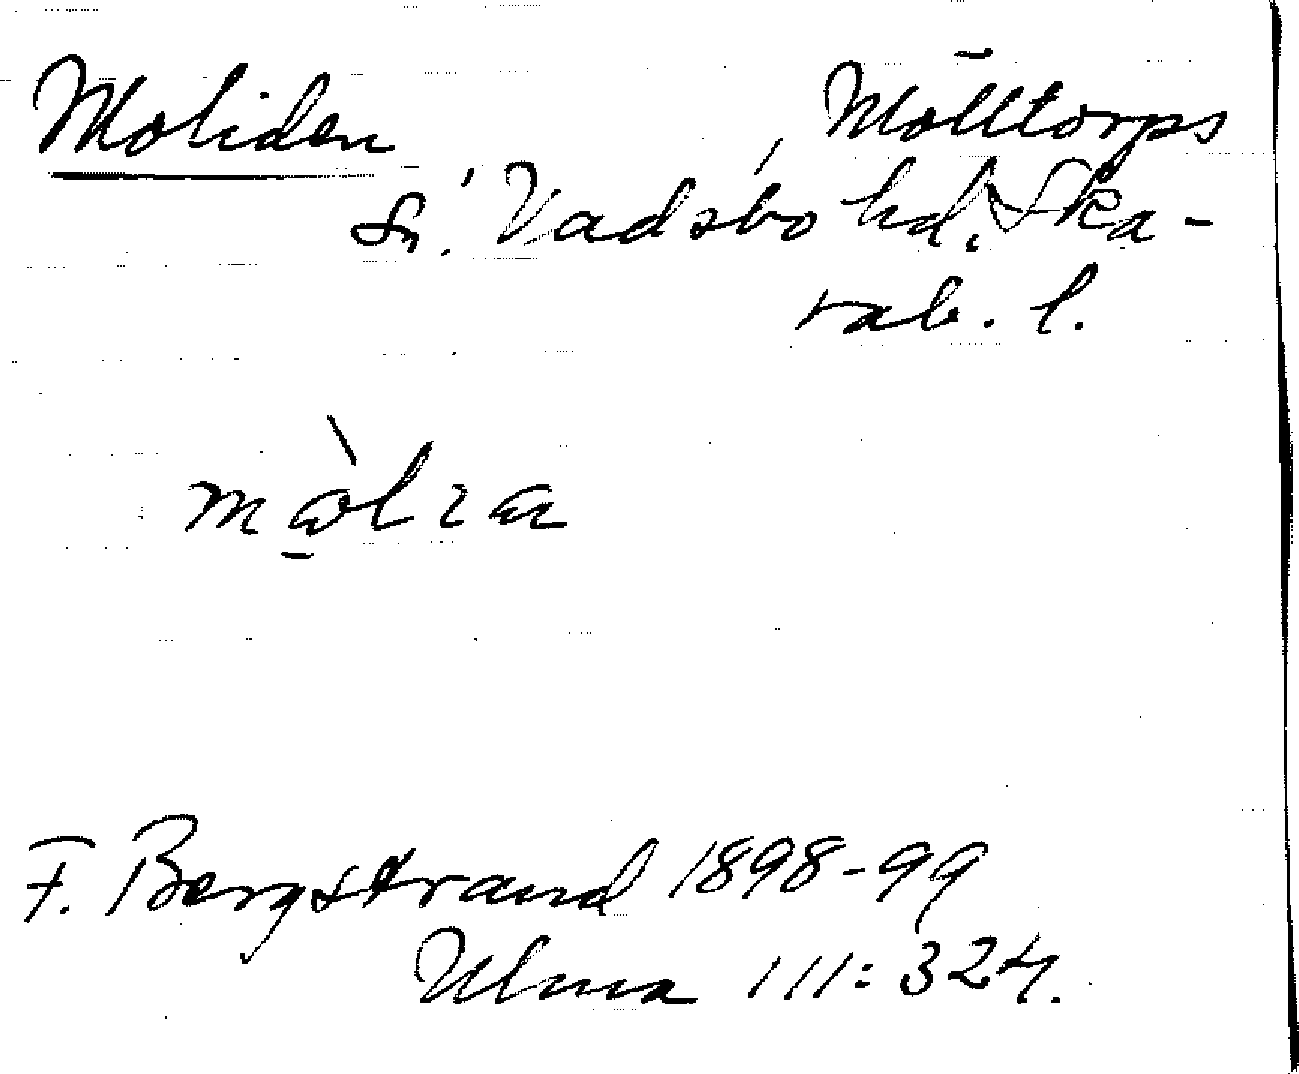 Moliden Mölltorps
sn. Vadsbo hd. Ska-
rab. l.
F. Bergstrand 1898-99
Ulma 111:324.